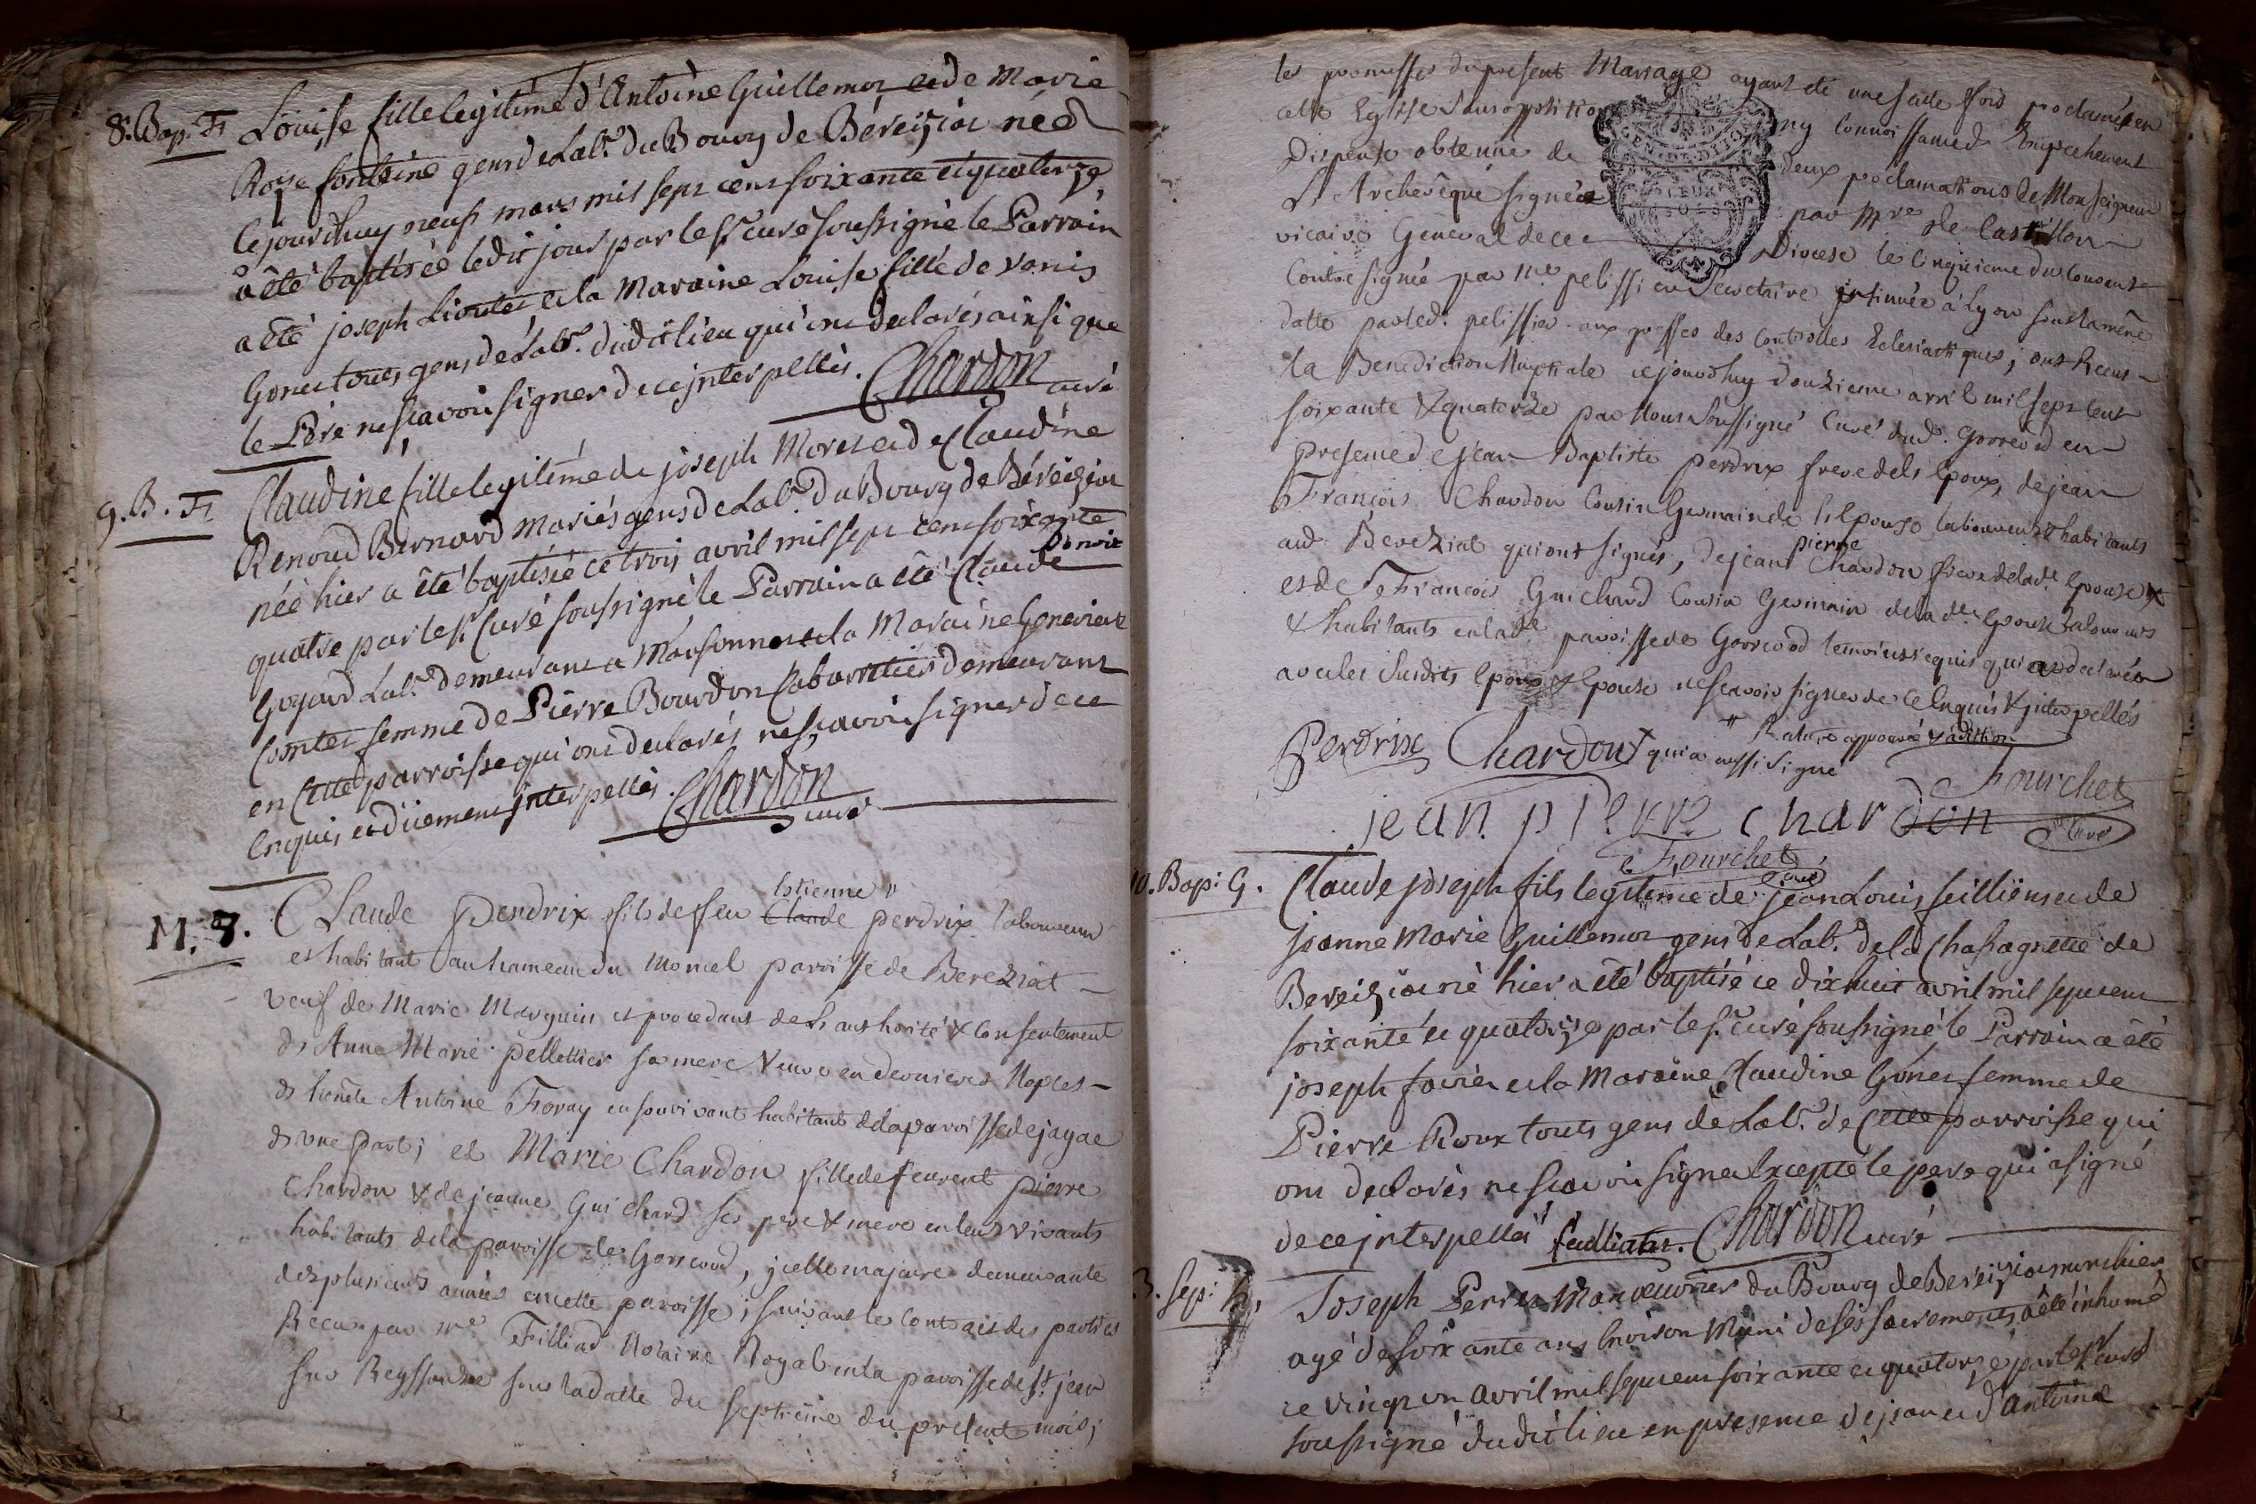 8. Bap. F. Louise fille legitime d'Antoine Guillemoz et de Marie
Roze fontaine gens de Labr. du Bourg de Béreiziat née
ce jourdhuy neuf mars mil sept cent soixante et quatorze
a été baptisée ledit jour par le sr curé soussigné le Parrain
a été joseph Lionter et la Maraine Louise fille de
Gonet touts gens de Labr. dudit lieu qui ont declarés ainsi que
le Père ne scavoir signer de ce jnterpellés. Chardon curé
9. B. F. Claudine fille legitime de joseph Morel et de Claudine
Renoud Bernard Mariés gens de Lab. du Bourg de Béreiziat
née hier a été baptisée ce trois avril mil sept cent soixante
quatre par le sr Curé soussigné le Parrain a été Claude Benoit
Goyard Labr. demeurant a Marsonnas et la Maraine Genevieve
Contet femme de Pierre Bourdon Cabarretier demeurant
en Cette parroisse qui ont declarés ne scavoir signer de ce
Enquis et duement jnterpellés. Chardon
curé
M. 3. Claude Perdrix fils de feu Claude Estienne " perdrix laboureur
et habitant au hameau du Moncel paroisse de Bereziat
veuf de Marie Marguin et procedant de l'authorité & consentement
d'Anne Marie pelletier sa mere veuve en dernieres Nopces
d'honête Antoine Foray en son vivant habitant de la paroisse de jayac
d'une part; et Marie Chardon fille de feurent pierre
Chardon & de jeanne Guichard ses pere & mere en leur vivants
habitants de la paroisse de Gorrevod, jcelle majeure demeurante
des plusieurs années en cette paroisse; suivant le contrait des parties
Recu par me Filliad Notaire Royal en la paroisse de St jean
sur Reyssouze sous la datte du septieme du present mois;
les promesses du present Mariage ayant été une seule fois proclamées en
cette Eglise sans opposition ny connoissance d'Empechement
Dispense obtenue de deux proclamations de Monseigneur
L'Archevêque signée par Mre de Castillon
vicaire Général de ce Diocese le cinquieme du courant
Contresignée par me pelissier Secretaire jnsinuée à Lyon sous la même
datte par led. pelissier aux greffes des Controlles Eclesiastiques; ont Receus
la Benediction Nuptiale ce jourdhuy douzieme avril mil sept cent
soixante & quatorze par Nous soussigné Curé dud. Gorrevod en
presence de jean Baptiste perdrix frere dels epoux, de jean
François Chardon Cousin Germain de lepouse laboureurs & habitants
aud. Bereziat qui ont signés, de jean pierre Chardon frere de lade epouse
et de Se François Guichard Cousin Germain de la de. Epouse laboureurs
& habitants en lade paroisse de Gorrevod temoins requis qui ont declarés
avec les susdits epoux & epouse ne scavoir signer de ce Enquis & jnterpellés
" Rature approuvée & adition
Perdrix Chardon + qui a aussi signé
Fourchet
jean. pierre chardon curé
Fourchet
curé
10. Bap: G. Claude joseph fils legitime de jean Louis feillient et de
joanne Marie Guillemoz gens de Labr. de la Chasagnette de
Bereiziat né hier a été baptisé ce dixhuit avril mil sept cent
soixante et quatorze par le sr. curé soussigné, le Parrain a été
joseph favier et la Maraine Claudine Gonet femme de
Pierre Roux touts gens de Labr. de Cette parroisse qui
ont declarés ne scavoir signer Excepté le pere qui a signé
de ce jnterpellés feillient. Chardon curé
3. Sep: h. Joseph Perret Manoeuvrier du Bourg de Bereiziat mort hier
agé de soixante ans Environ Muni de ses sacrements, a été inhumé
ce vingt un avril mil sept cent soixante et quatorze par le sr curé
soussigné dudit lieu en presence de jean et d'Antoine